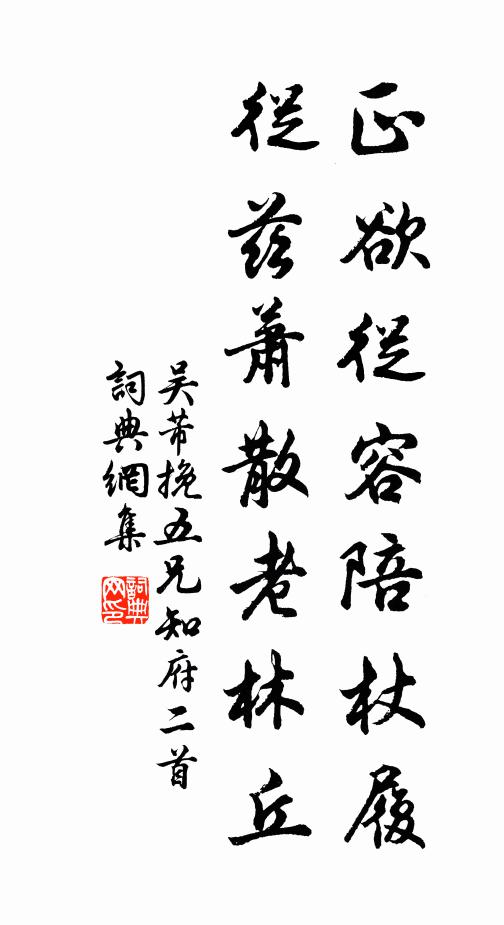 正欲從容陪杖履
從茲蕭散老林丘
吳芾挽五兄知府二首
詞典網集
詞典網印